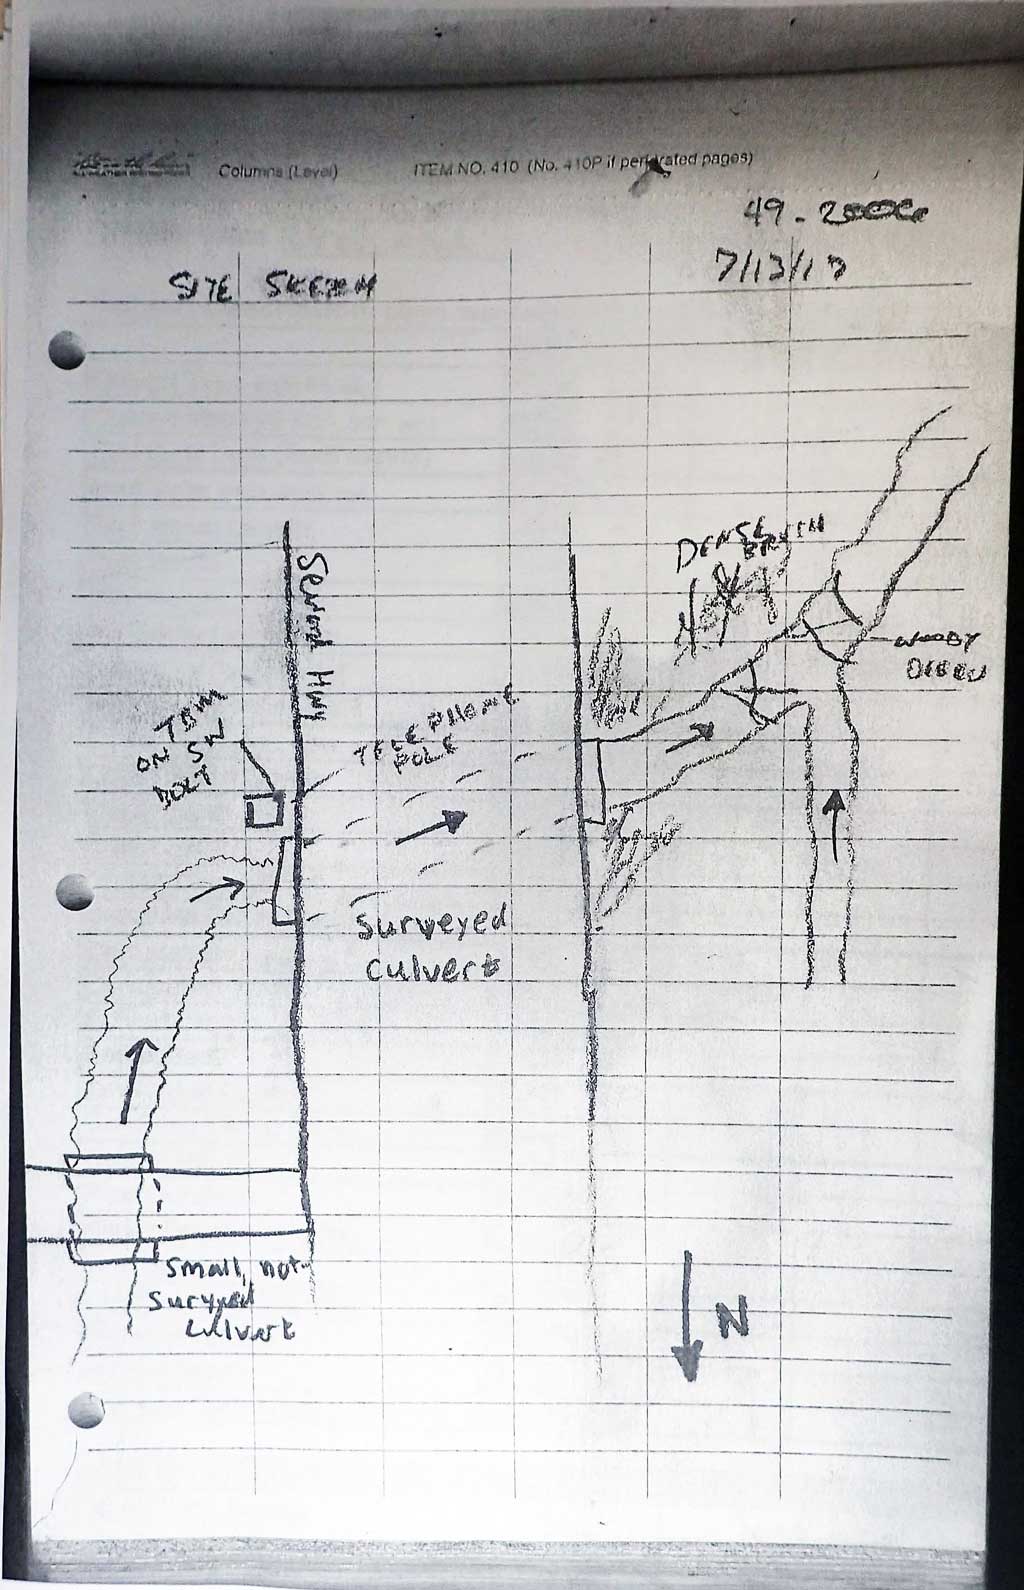 Columns (Level)
ITEM NO. 410 (No. 410P if perforated pages)
7/13/17
SITE SKETCH
DENSE
BRUSH
Seward Hwy
WOODY
DEBRIS
TELEPHONE
POLE
TBM
ON SW
BOLT
Surveyed
culvert
Small, not
Surveyed
culvert
N